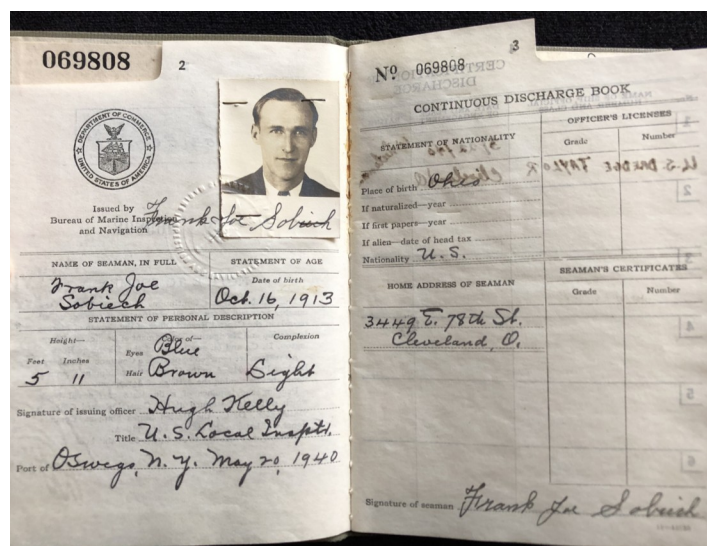 069808
2
DEPARTMENT OF COMMERCE
UNITED STATES OF AMERICA
Issued by
Bureau of Marine Inspection
and Navigation
Frank Joe Sobiech
NAME OF SEAMAN, IN FULL
Frank Joe
Sobiech
STATEMENT OF AGE
Date of birth
Oct. 16, 1913
STATEMENT OF PERSONAL DESCRIPTION
Height—
Color of—
Complexion
Feet Inches
Eyes Blue
5 11
Hair Brown
Light
Signature of issuing officer Hugh Kelly
Title U. S. Local Insptr.
Port of Oswego, N. Y. May 20, 1940
3
No 069808
CONTINUOUS DISCHARGE BOOK
STATEMENT OF NATIONALITY
Place of birth Ohio
If naturalized—year
If first papers—year
If alien—date of head tax
Nationality U. S.
OFFICER'S LICENSES
Grade Number
HOME ADDRESS OF SEAMAN
3449 E. 78th St.
Cleveland, O.
SEAMAN'S CERTIFICATES
Grade Number
Signature of seaman Frank Joe Sobiech